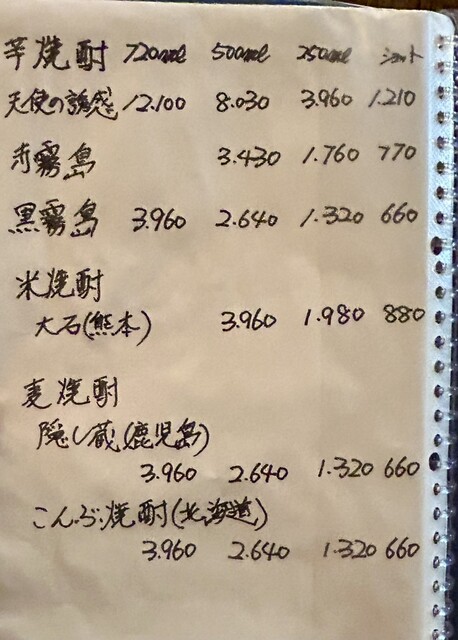 芋焼酎 720ml 500ml 250ml ショット
天使の誘惑 12.100 8.030 3.960 1.210
赤霧島 3.430 1.760 770
黒霧島 3.960 2.640 1.320 660
米焼酎
大石(熊本) 3.960 1.980 880
麦焼酎
隠し蔵(鹿児島)
3.960 2.640 1.320 660
こんぶ焼酎(北海道)
3.960 2.640 1.320 660